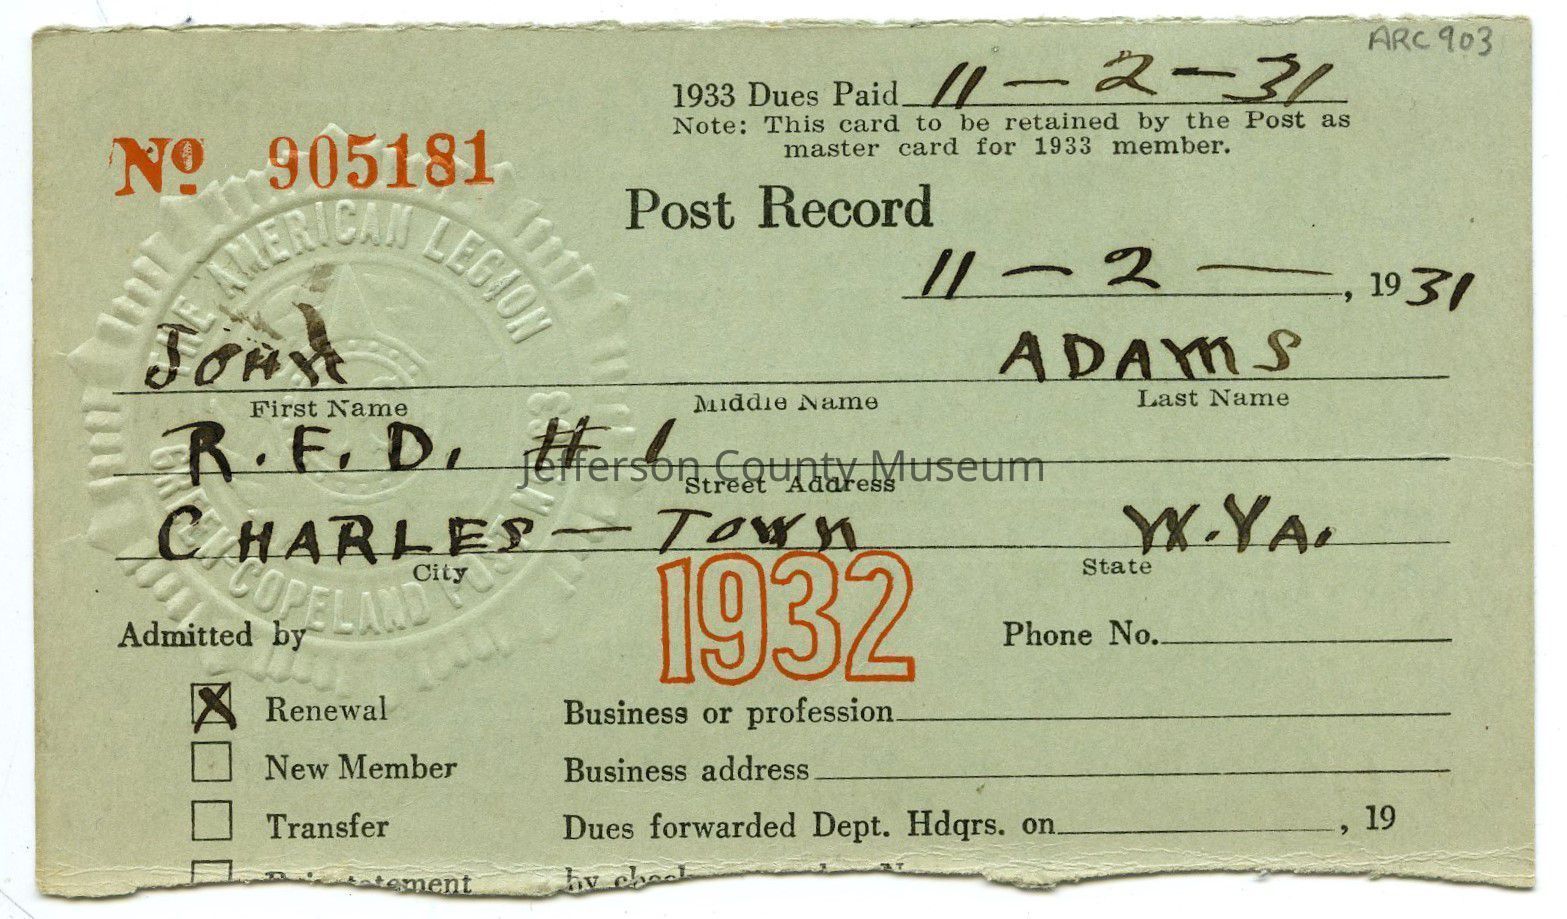 ARC 903
1933 Dues Paid 11 - 2 - 31
Note: This card to be retained by the Post as
master card for 1933 member.
No. 905181
Post Record
11 - 2 - , 1931
THE AMERICAN LEGION
JOHN ADAMS
First Name Middle Name Last Name
R.F.D. # 1
Jefferson County Museum
Street Address
CHARLES - TOWN W.VA.
City State
COPELAND POST
1932
Admitted by Phone No.
X Renewal Business or profession
New Member Business address
Transfer Dues forwarded Dept. Hdqrs. on , 19
Reinstatement by check